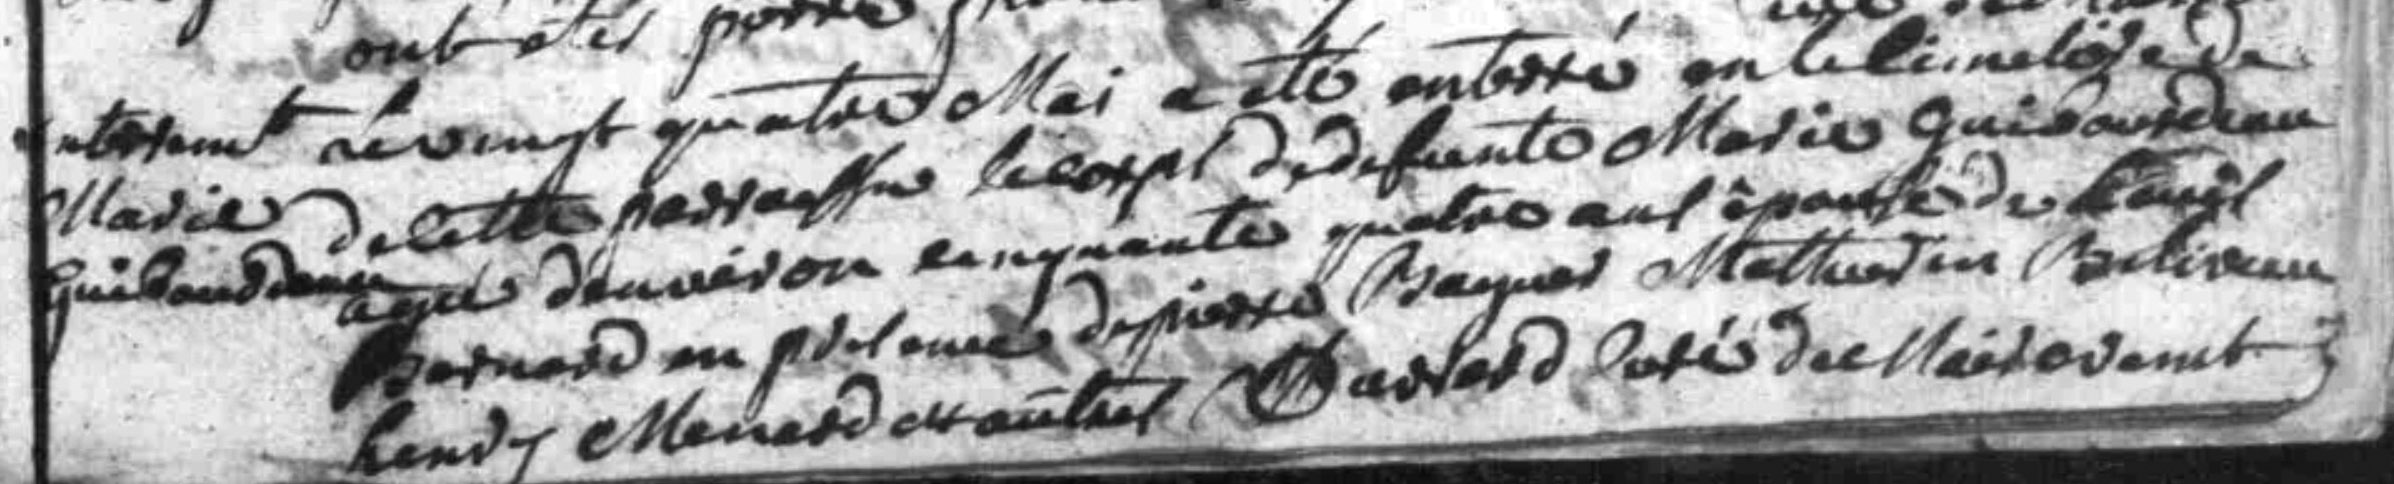 ont étés
enteremt le vingt quatre Mai a eté enterré en le Cimetiére de
Marie de cette parroësse le corps de defunte Marie Guibaudeau
Guibaudeau agée d'enviéron cinquante quatre ans épouse de Louis
Bernard en présence de pierre Baquer Mathurin Beliveau
henry Menard et autres Barrard Curé de Mairevent